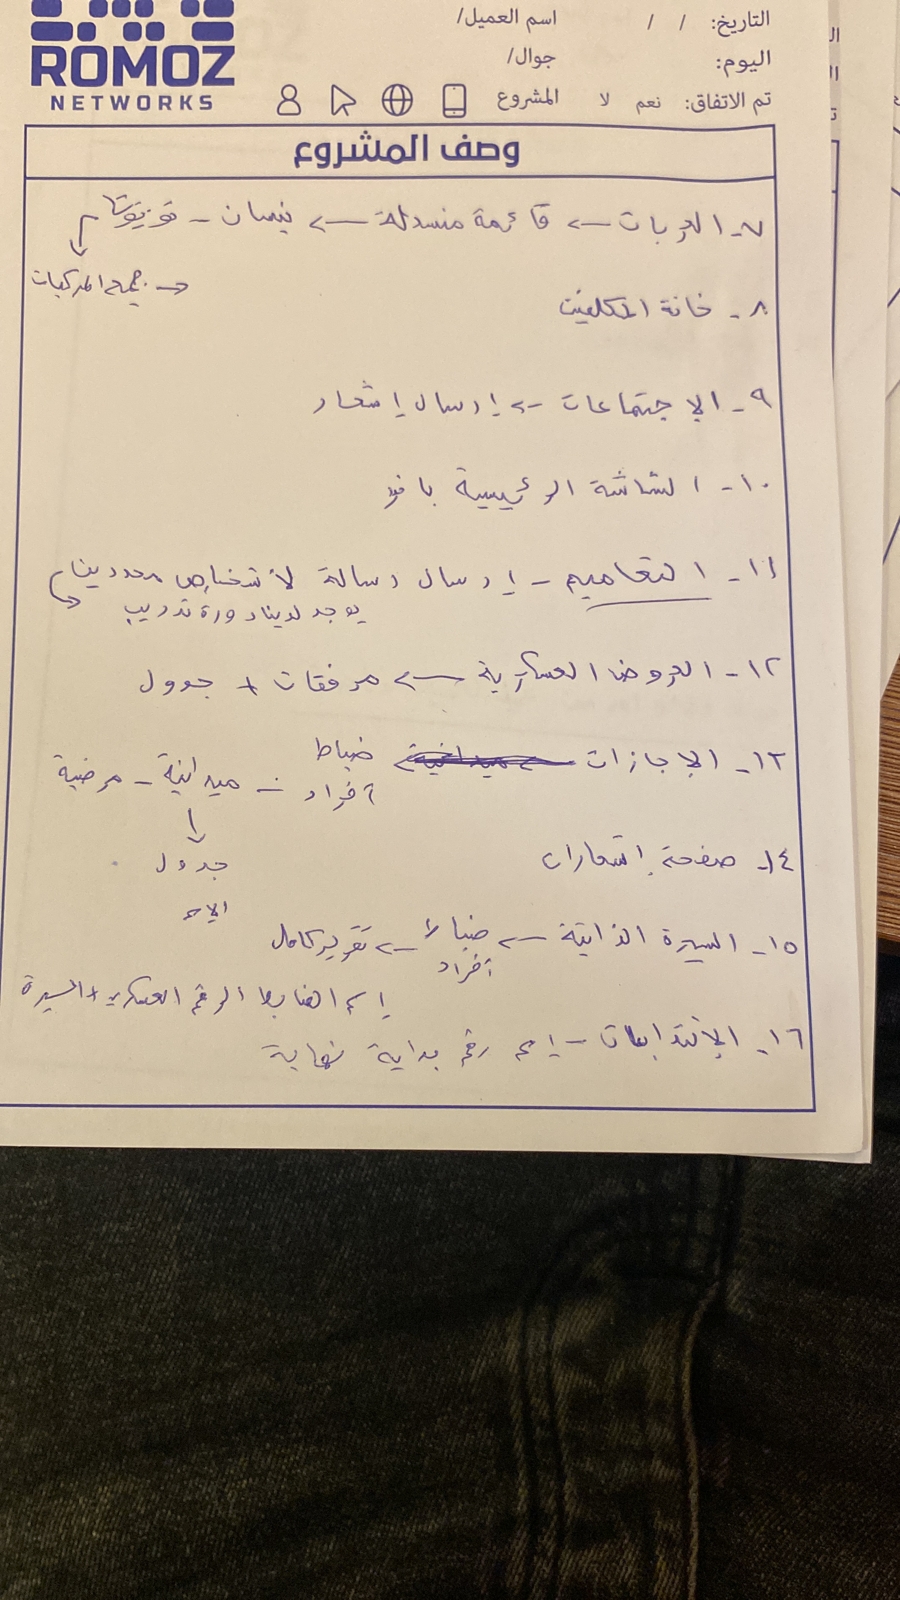 ROMOZ
NETWORKS
التاريخ: / / اسم العميل/
اليوم: جوال/
تم الاتفاق: نعم لا المشروع
وصف المشروع
٧- العربات <- قائمة منسدلة <- نيسان - تويوتا
-> جميع المركبات
٨- خانة المكلفين
٩- الإجتماعات -> إرسال إشعار
١٠- الشاشة الرئيسية
١١- التعاميم - إرسال رسالة لأشخاص محددين
يوجد لدينا دورة تدريب
١٢- العروض العسكرية <- مرفقات + جدول
١٣- الإجازات ضباط
أفراد - ميدانية - مرضية
جدول
١٤- صفحة إشعارات
١٥- السيرة الذاتية <- ضباط <- تقرير كامل
أفراد
إسم الضابط الرقم العسكري + السيرة
١٦- الإنتدابات - إسم رقم بداية نهاية